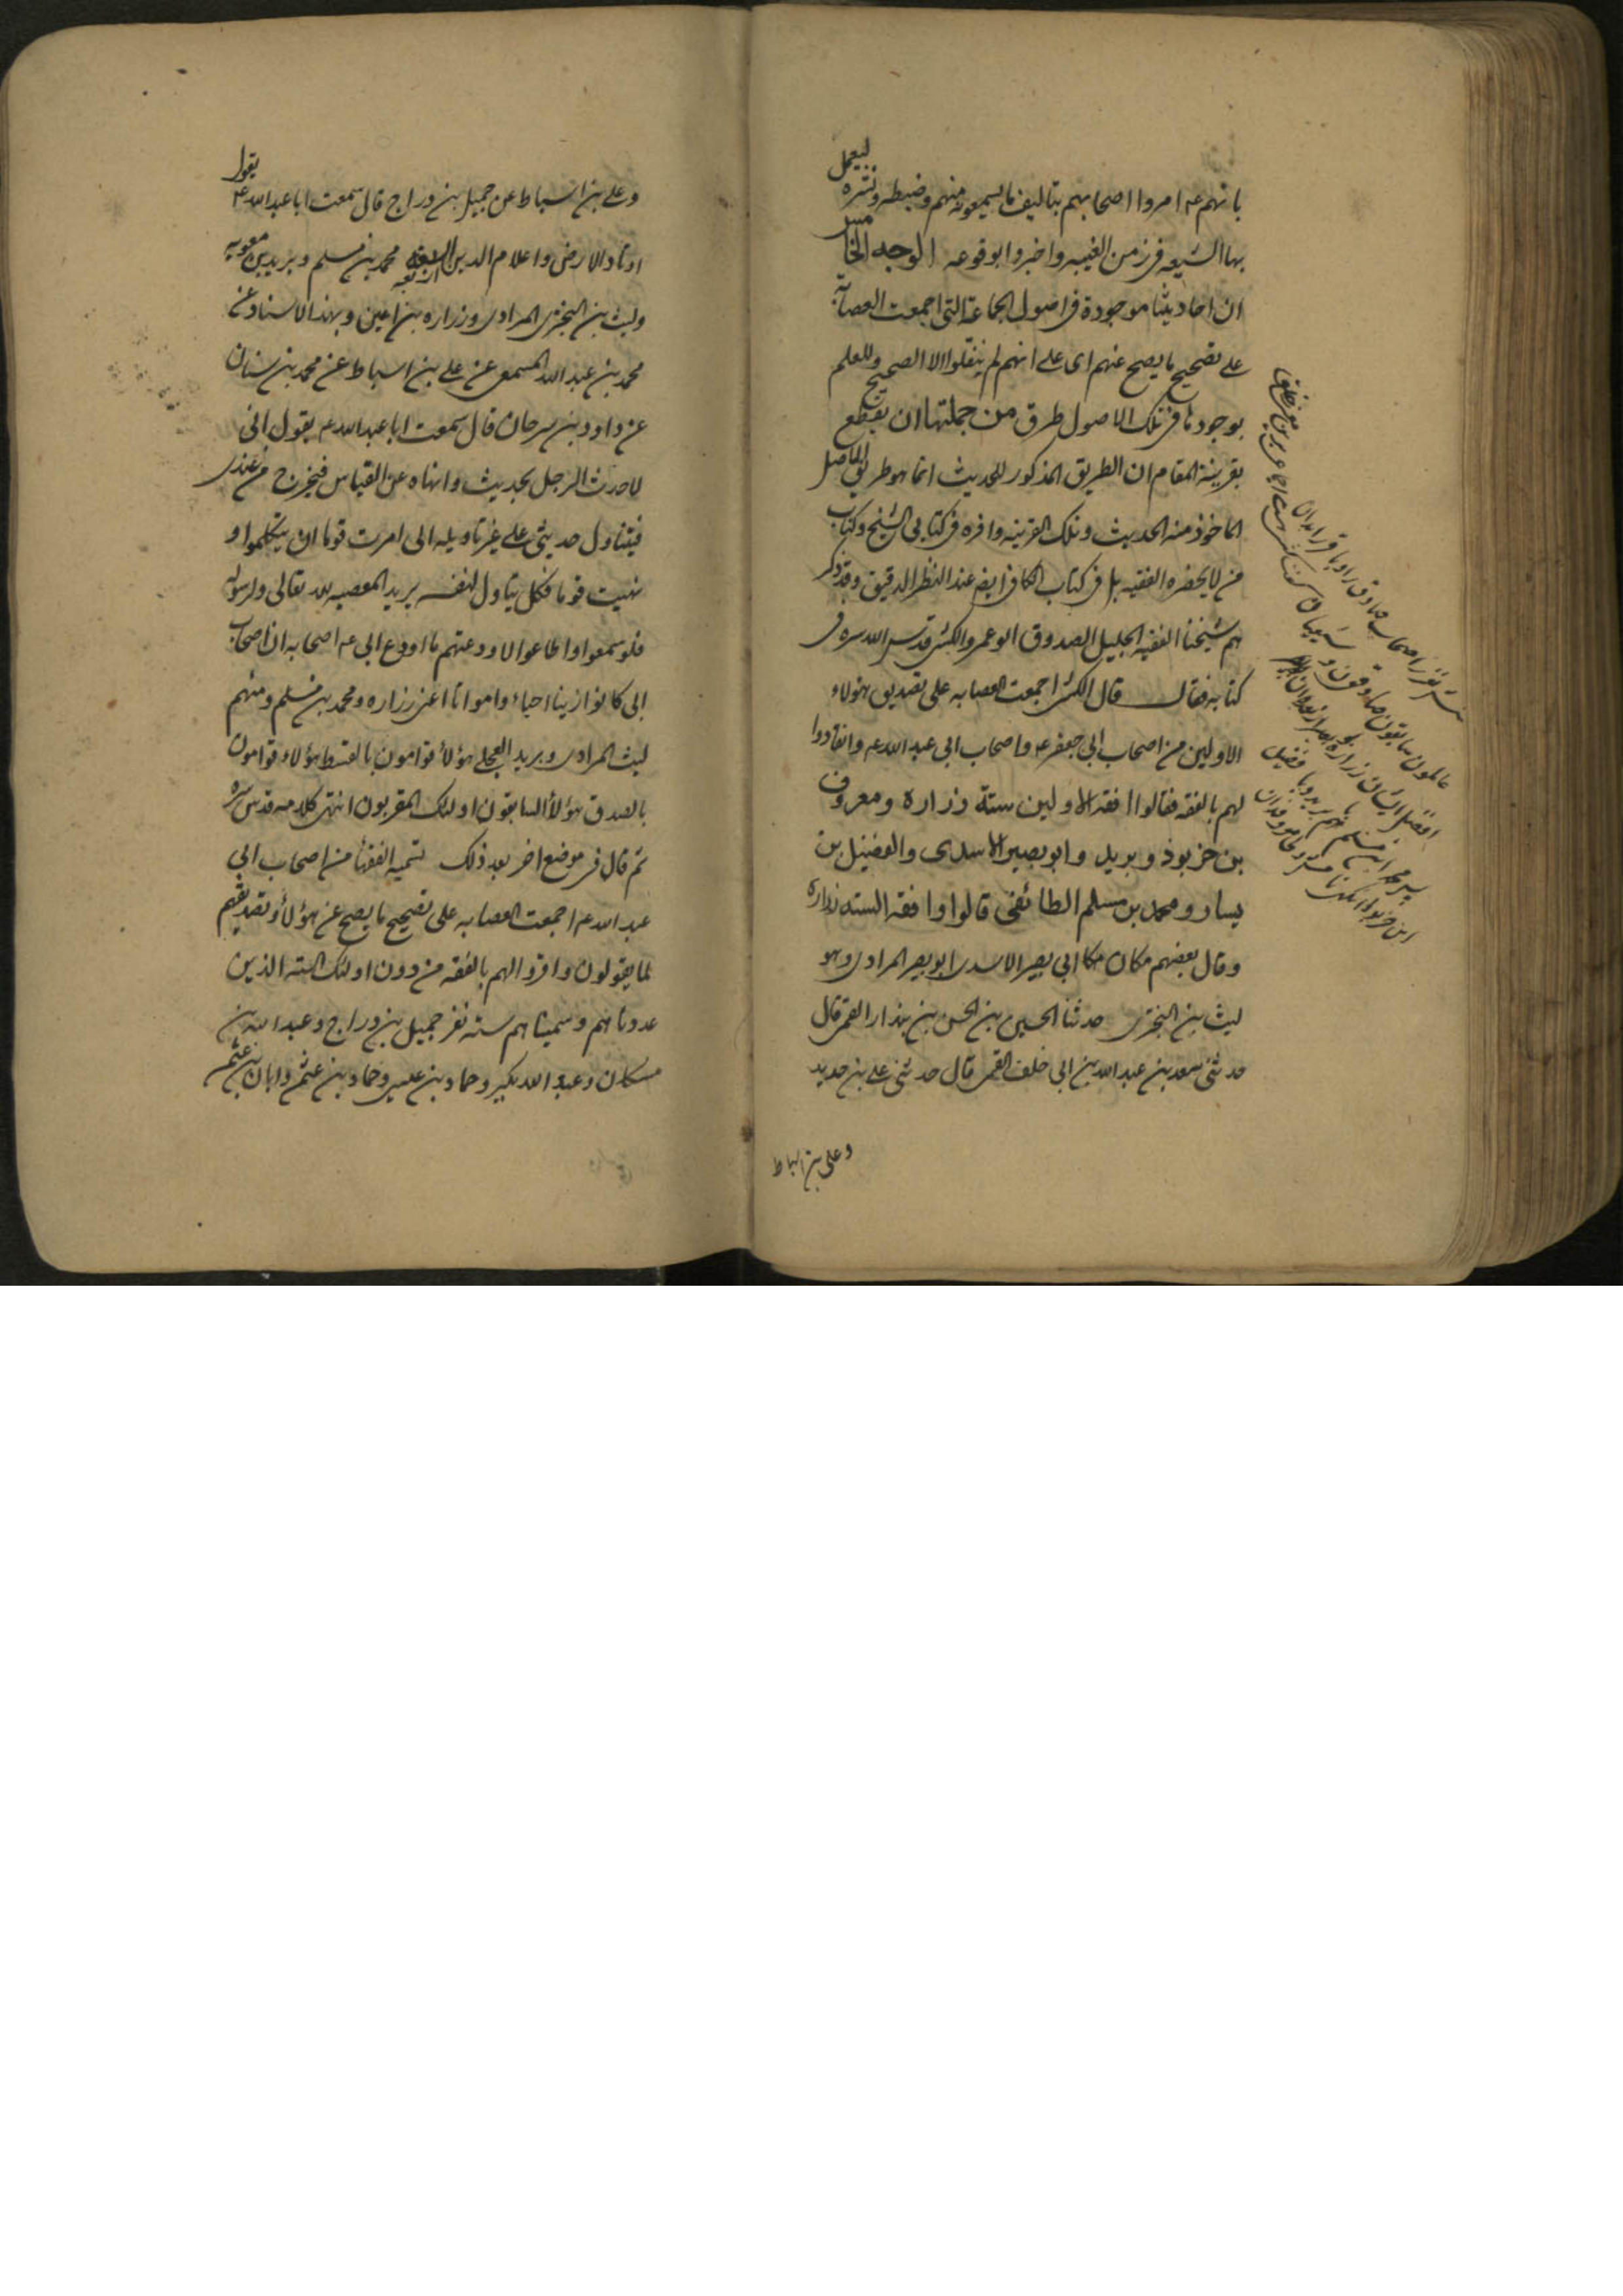 بانهم عه امروا اصحابهم بتاليف ما يسمعونه منهم وضبطه ونشره ليعمل
بها الشيعه فى زمن الغيبه واخبروا بوقوعه الوجه الخامس
ان احاديثنا موجودة فى اصول الجماعة التى اجمعت العصابه
على تصحيح ما يصح عنهم اى على انهم لم ينقلوا الا الصحيح وللعلم
بوجودها فى تلك الاصول طرق من جملتها ان يقطع
بقرينة المقام ان الطريق المذكور للحديث انما هو طريق الى الاصل
الماخوذ منه الحديث وتلك القرينه وافره فى كتابى الشيخ وكتاب
من لا يحضره الفقيه بل فى كتاب الكافى ايضا عند النظر الدقيق وقد ذكر
هم شيخنا الفقيه الجليل الصدوق ابو عمرو الكشى قدس الله سره فى
كتابه فقال قال الكشى اجمعت العصابه على تصديق هؤلاء
الاولين من اصحاب ابى جعفر عه واصحاب ابى عبد الله عه وانقادوا
لهم بالفقه فقالوا افقه الاولين ستة زراره ومعروف
بن خربوذ وبريد وابو بصير الاسدى والفضيل بن
يسار ومحمد بن مسلم الطائفى قالوا وافقه السته زراره
وقال بعضهم مكان ابى بصير الاسدى ابو بصير المرادى وهو
ليث بن البخترى حدثنا الحسين بن الحسن بن بندار القمى قال
حدثنى سعد بن عبد الله بن ابى خلف القمى قال حدثنى على بن حديد
وعلى بن اسباط
شش نفر از اصحاب صادق
عالمون سابقون صادقون
افضل ايشان زراره
پس محمد ابن مسلم
وعلى بن اسباط عن جميل بن دراج قال سمعت ابا عبد الله ع يقول
اوتاد الارض واعلام الدين اربعه محمد بن مسلم وبريد بن معويه
وليث بن البخترى المرادى وزراره بن اعين وبهذا الاسناد عن
محمد بن عبد الله المسمعى عن على بن اسباط عن محمد بن سنان
عن داود بن سرحان قال سمعت ابا عبد الله عه يقول انى
لاحدث الرجل بحديث وانهاه عن القياس فيخرج من عندى
فيتناول حديثى على غير تاويله انى امرت قوما ان يتكلموا و
نهيت قوما فكل يتاول لنفسه يريد المعصيه لله تعالى ولرسوله
فلو سمعوا واطاعوا لاودعتهم ما اودع ابى عه اصحابه ان اصحاب
ابى كانوا زينا احياء وامواتا اعنى زراره ومحمد بن مسلم ومنهم
ليث المرادى وبريد العجلى هؤلاء قوامون بالقسط هؤلاء قوامون
بالصدق هؤلاء السابقون اولئك المقربون انتهى كلامه قدس سره
ثم قال فى موضع اخر بعد ذلك تسميه الفقهاء من اصحاب ابى
عبد الله عه اجمعت العصابه على تصحيح ما يصح عن هؤلاء وتصديقهم
لما يقولون واقروا لهم بالفقه من دون اولئك السته الذين
عددناهم وسميناهم سته نفر جميل بن دراج وعبد الله بن
مسكان وعبد الله بكير وحماد بن عيسى وحماد بن عثم وابان بن عثم